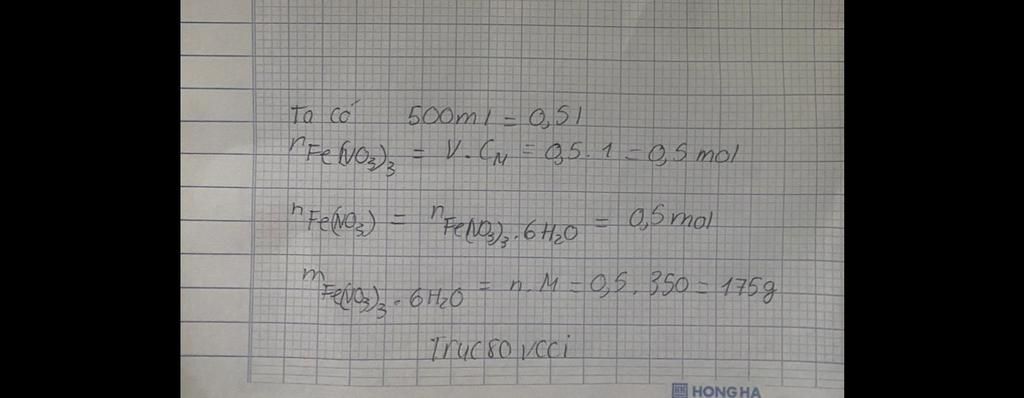 Ta có 500ml = 0,5l
nFe(NO3)3 = V. CM = 0,5. 1 = 0,5 mol
nFe(NO3) = nFe(NO3)3. 6H2O = 0,5mol
mFe(NO3)3. 6H2O = n. M = 0,5. 350 = 175g
HONG HA